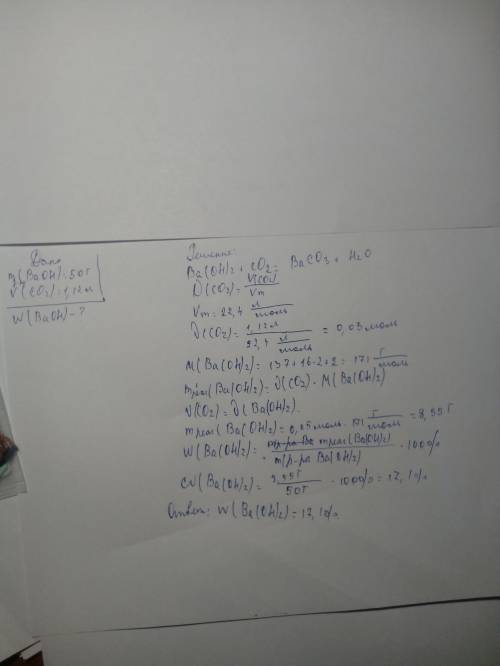 Дано
m(BaOH)=50г
V(CO2)=1,12л
W(BaOH)-?
Решение:
Ba(OH)2 + CO2 = BaCO3 + H2O
ν(CO2)= V(CO2) / Vm
Vm = 22,4 л/моль
ν(CO2)= 1,12л / 22,4 л/моль = 0,05 моль
M(Ba(OH)2)= 137+16·2+2= 171 г/моль
mреаг(Ba(OH)2)= ν(CO2)· M(Ba(OH)2)
ν(CO2)= ν(Ba(OH)2).
mреаг(Ba(OH)2)= 0,05 моль · 171 г/моль = 8,55г
W(Ba(OH)2)= mреаг(Ba(OH)2) / m(р-ра Ba(OH)2) · 100%
W(Ba(OH)2)= 8,55г / 50г · 100%= 17,1%
Ответ: W(Ba(OH)2)= 17,1%.